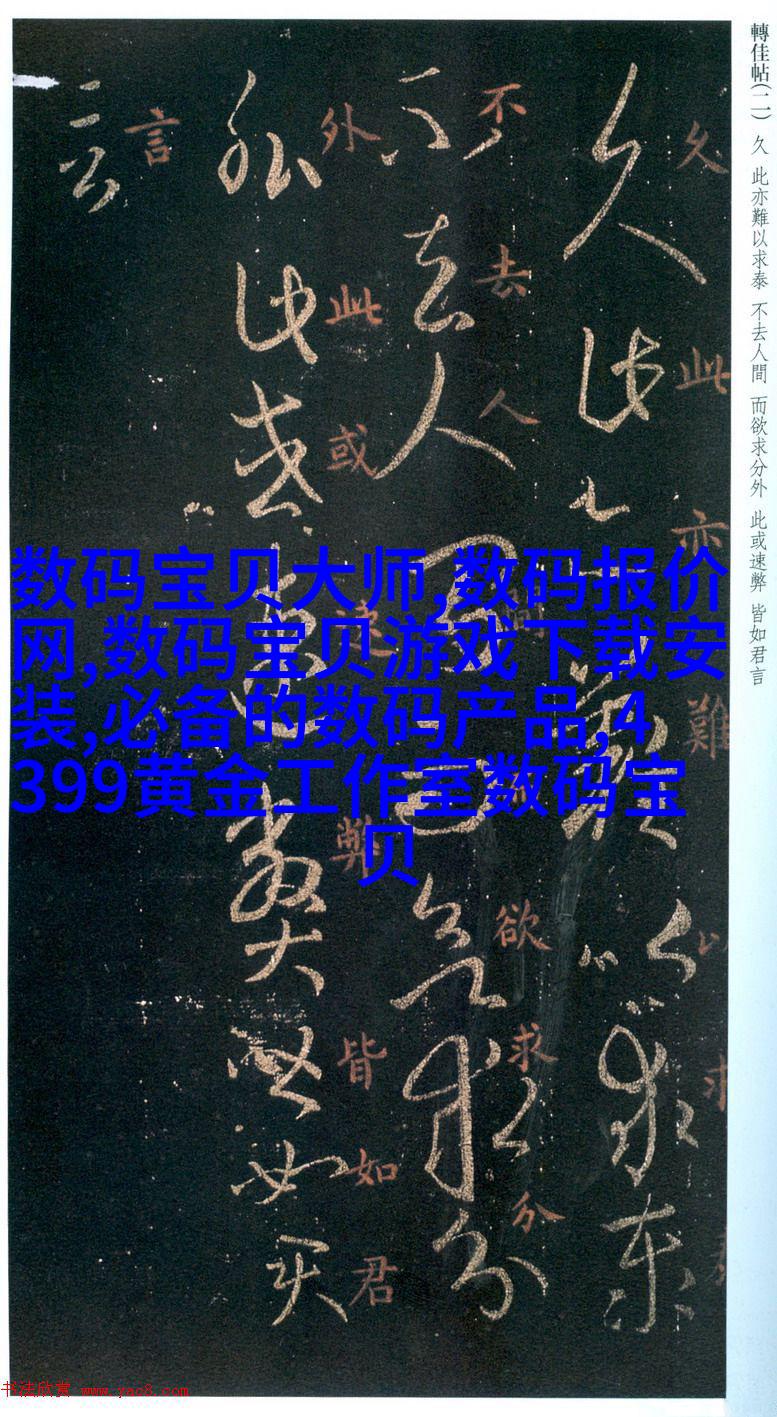 轉佳帖(二) 久 此亦難以求泰 不去人間 而欲求分外 此或速弊 皆如君言
久此亦難以求
不去人間欲求分
外此或速弊皆如君
言
数码宝贝大师,数码报价
网,数码宝贝游戏下载安
装,必备的数码产品,4
399黄金工作室数码宝
贝
书法欣赏 www.yac8.com